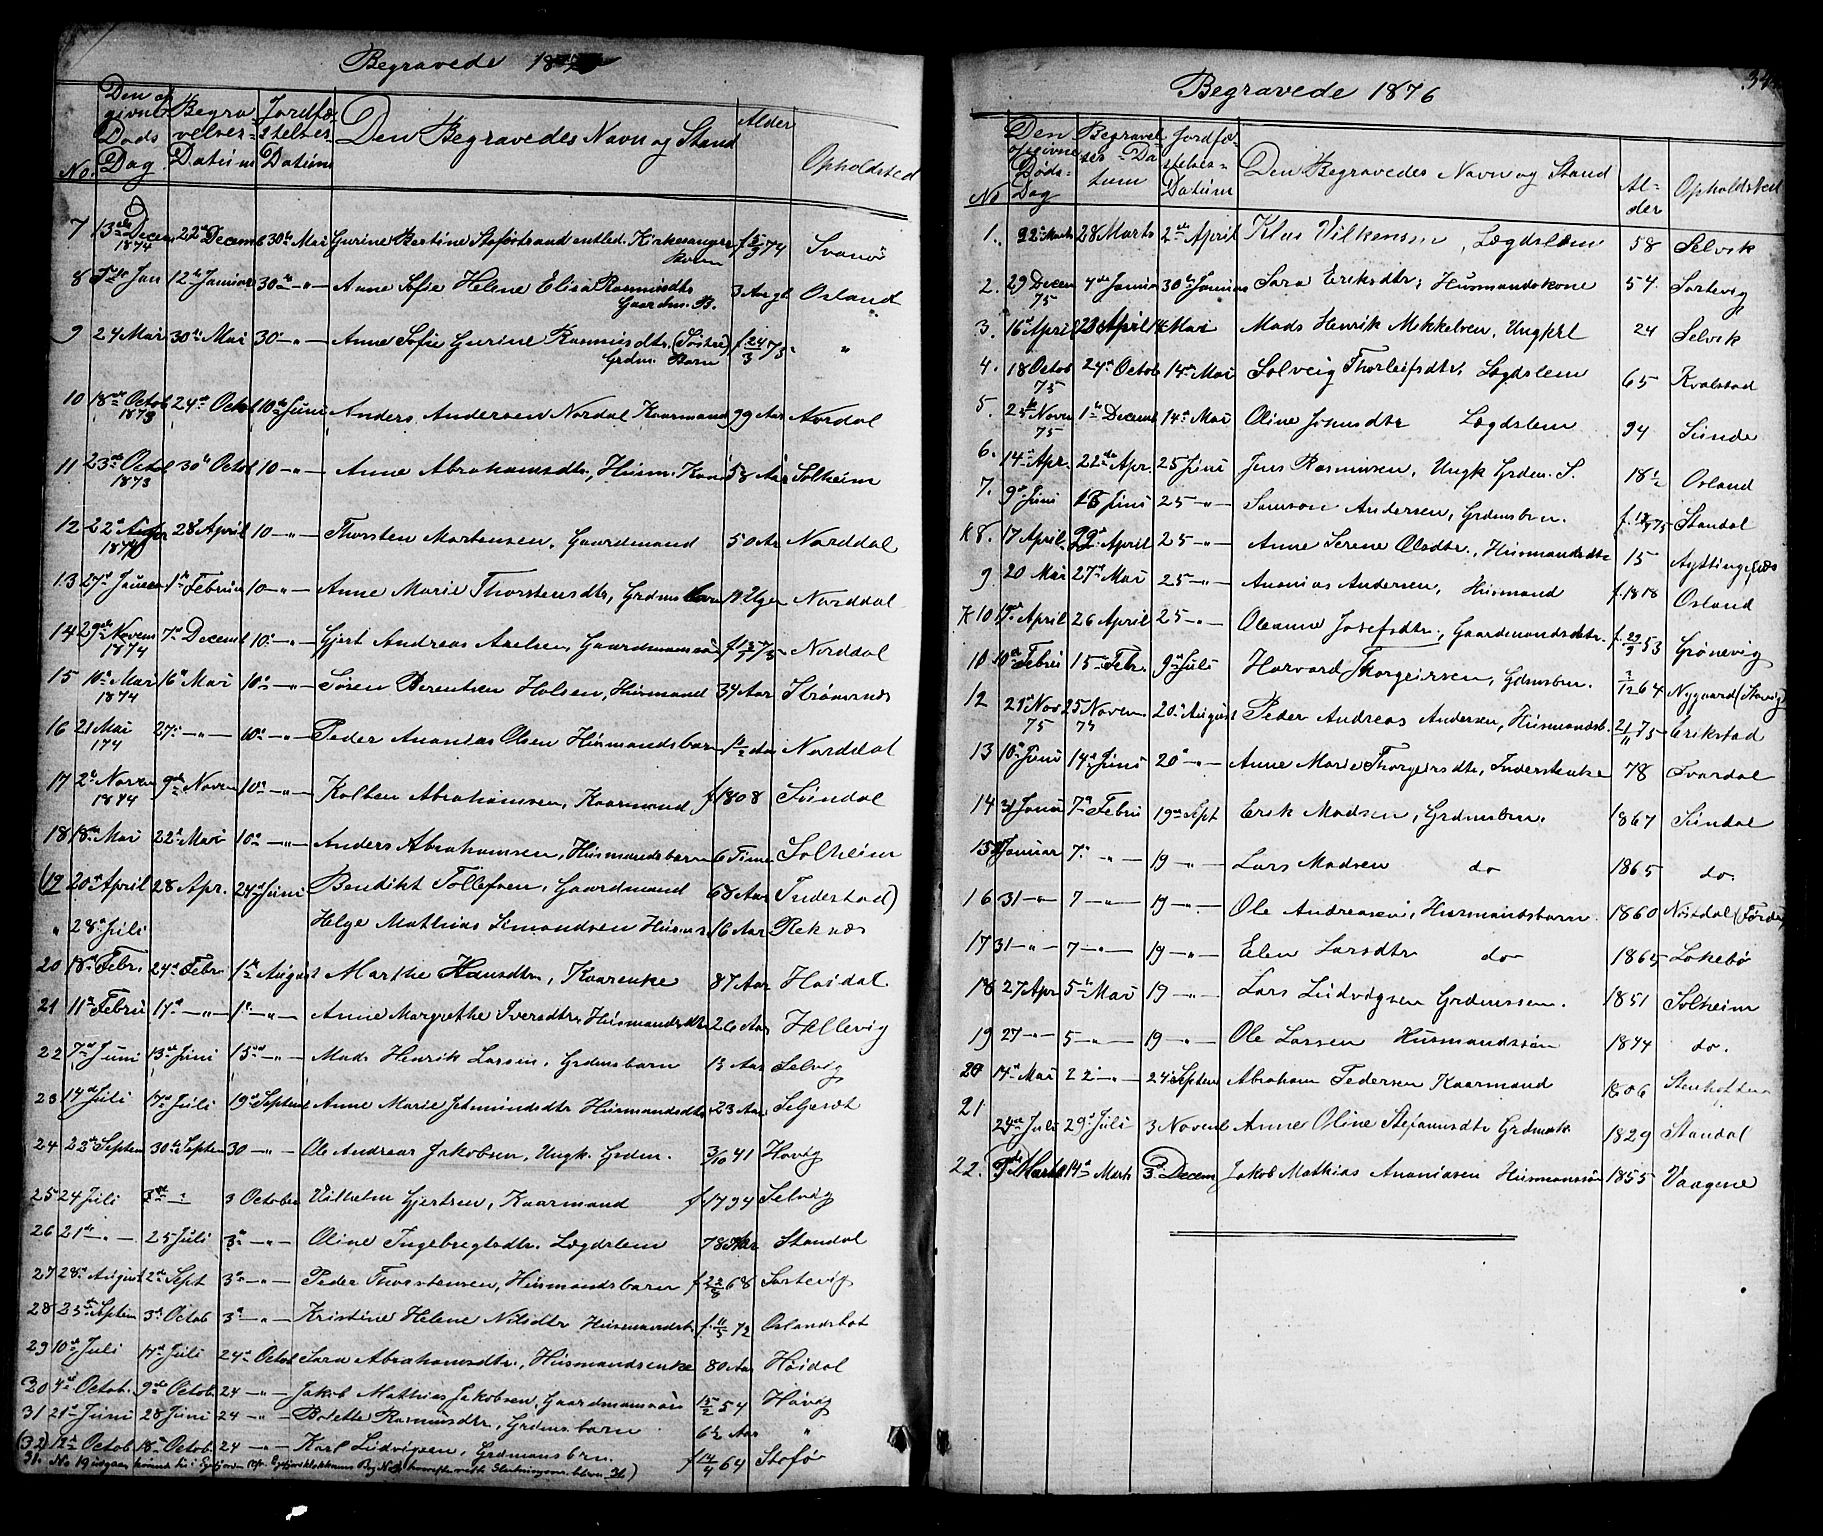 Begravede 187
No. Den opgivne Døds Dag Begravelses Datum Jordfæstelses Datum Den Begravedes Navn og Stand Alder Opholdsted
7 13de Decem 1874 22de Decemb 30te Mai Gurine Bertine Stoforstrand entled. Kirkesanger f 5/3 74 Svanø
8 5te Jan 12te Januar 30 -"- Anne Sofie Helene Elisa Rasmusdtr Gaardm. B. 3 Aar gl Osland
9 24 Mai 30te Mai 30 -"- Anne Sofie Gurine Rasmusdtr (Søstre) Grdm. Barn f 24/3 73 "
10 18de Octob 1873 24de Octob 10de Juni Anders Andersen Nordal Kaarmand 99 Aar Nordal
11 23de Octob 1873 30te Octob 10 -"- Anne Abrahamsdtr, Husm. Kone 58 Aar Solheim
12 22de 1874 28 April 10 -"- Thorsten Mortensen, Gaardmand 50 Aar Norddal
13 27de Januar 1ste Februar 10 -"- Anne Marie Thorstensdtr, Grdms Barn Uger Norddal
14 29de Novem 1874 7de Decemb 10 -"- Gjert Andreas Axelsen, Gaardmansøn f 73 Norddal
15 10de Mai 1874 16de Mai 10de -"- Søren Berentsen Holsen, Husmand 34 Aar Strømsnes
16 21 Mai 174 27 -"- 10de -"- Peder Ananias Olsen Husmandsbarn 1 1/2 Aar Norddal
17 2de Novem 1874 9de Novem 10de -"- Kolben Abrahamsen, Kaarmand f 1808 Sundal
18 18de Mai 22de Mai 10de -"- Anders Abrahamsen, Husmandsbarn 6 Time Solheim
(19 20de April 28 Apr. 24de Juni Bendikt Tollefsen, Gaardmand 68 Aar Indestad)
" 28de Juli Helge Mathias Simondsen Husms 16 Aar Reknæs
20 18de Febr. 24de Febr. 1ste August Marthe Hansdtr, Kaarenke 87 Aar Høidal
21 11te Febru 17de -"- 1ste -"- Anne Margrethe Iversdtr, Husmandsdtr 26 Aar Hellevig
22 7de Juni 13de Juni 15de -"- Mads Henrik Larsen, Grdmsbarn 13 Aar Selvig
23 14de Juli 17de Juli 19de Septemb Anne Marie Jetmundsdtr Husmandsdtr 23 Aar Seljesæt
24 22de Septem 30te Septem 30 -"- Ole Andreas Jakobsen, Ungk. Grdm. 3/10 41 Høvig
25 24 Juli 3de " 3 October Vilhelm Gjertsen, Kaarmand f 1794 Selvig
26 21de -"- 25 Juli 3de -"- Oline Ingebregtsdtr. Lægdslem 78 Aar Standal
27 28de August 2de Sept 3de -"- Peder Thorstensen, Husmandsbarn f 22/8 68 Sortevig
28 23de Septem 3de Octob 3de -"- Kristine Helene Nilsdtr Husmandsb f. 11/5 72 Oslandsbot
29 10de Juli 17de Juli 24de Octob Sara Abrahamsdtr., Husmandsenke 80 Aar Høidal
30 4de Octob. 9de Octob. 24 -"- Jakob Mathias Jakobsen, Gaardmansøn 15/2 54 Høvig
31 21de Juni 28 Juni 24 -"- Bolette Rasmusdtr, Grdmsbarn 6 1/2 Aar "
(32) 12te Octob 18de Octob. 24 -"- Karl Ludvigsen, Grdmansbrn. f 14/4 64 Stofø
31. No 19 udgaar
Begravede 1876
34
No Den opgivne Døds-Dag Begravelses-Datum Jordfæstelses-Datum Den Begravedes Navn og Stand Alder Opholdsted
1. 22 Marts 28 Marts 2de April Klas Vilkensen, Lægdslem 58 Selvik
2. 29 Decem 75 4de Janua 30te Januar Sara Eriksdtr, Husmandskone 54 Sortevig
3. 16de April 21 April 14 Mai Mads Henrik Mikkelsen, Ungkrl 24 Selvik
4. 18 Octob 75 24de Octob 14de Mai Solveig Thorleifsdtr, Lægdslem 65 Kvalstad
5. 25te Novem 75 1ste Decemb 14de Mai Oline Josendtr Lægdslem 94 Sunde
6. 14de Apr. 22de Apr. 25 Juni Jens Rasmusen, Ungk Grdm. S. 18 1/2 Osland
7. 9de Juni 16 Juni 25 -"- Samson Andersen, Grdmsbrn. f. 75 Standal
K 8. 17 April. 22de April 25 -"- Anne Serene Olsdtr., Husmandsdtr 15 Ayttingsnæs
9 20 Mai 27de Mai 25 -"- Ananias Andersen, Husmand f. 1818 Osland
K 10 19de April 26 April 25 -"- Oleanne Josefsdtr., Gaardmandsdtr. f. 29/9 53 Grønevig
10 10de Febru 15 Febr. 9de Juli Harvard Thorgeirsen, Gdmsbrn. 2/12 64 Nygaard (Stavig)
12 21de Nov 75 25 Novem 75 20de August Peder Andreas Andersen, Husmandsb. 21/11 75 Erikstad
13 10de Juni 14de Juni 20de -"- Anne Marie Thorgeirsdtr, Inderstenke 78 Svardal
14 31 Janua 7de Febru 19de Sept Erik Madsen, Grdmsbrn. 1867 Sundal
15 Januar 7de -"- 19 -"- Lars Madsen do 1865 do.
16 31 -"- 7 -"- 19 -"- Ole Andreasen, Husmandsbarn 1860 Nøstdal (Førde)
17 31 -"- 7 -"- 19 -"- Elen Larsdtr do 1865 Løkebø
18 27 Apr 5te Mai 19 -"- Lars Ludvigsen Grdmssøn. 1851 Solheim
19 27 -"- 5 -"- 19 -"- Ole Larsen Husmandssøn 1874 do.
20 17de Mai 22 -"- 24de Septem Abraham Pedersen Kaarmand 1806
21 24de Juli 29de Juli 3 Novemb Anne Oline Stefanusdtr Grdmsk 1829 Standal
22. 7de Marts 14de Marts 3de Decem Jakob Mathias Ananiasen Husmanssøn 1855 Vaagene